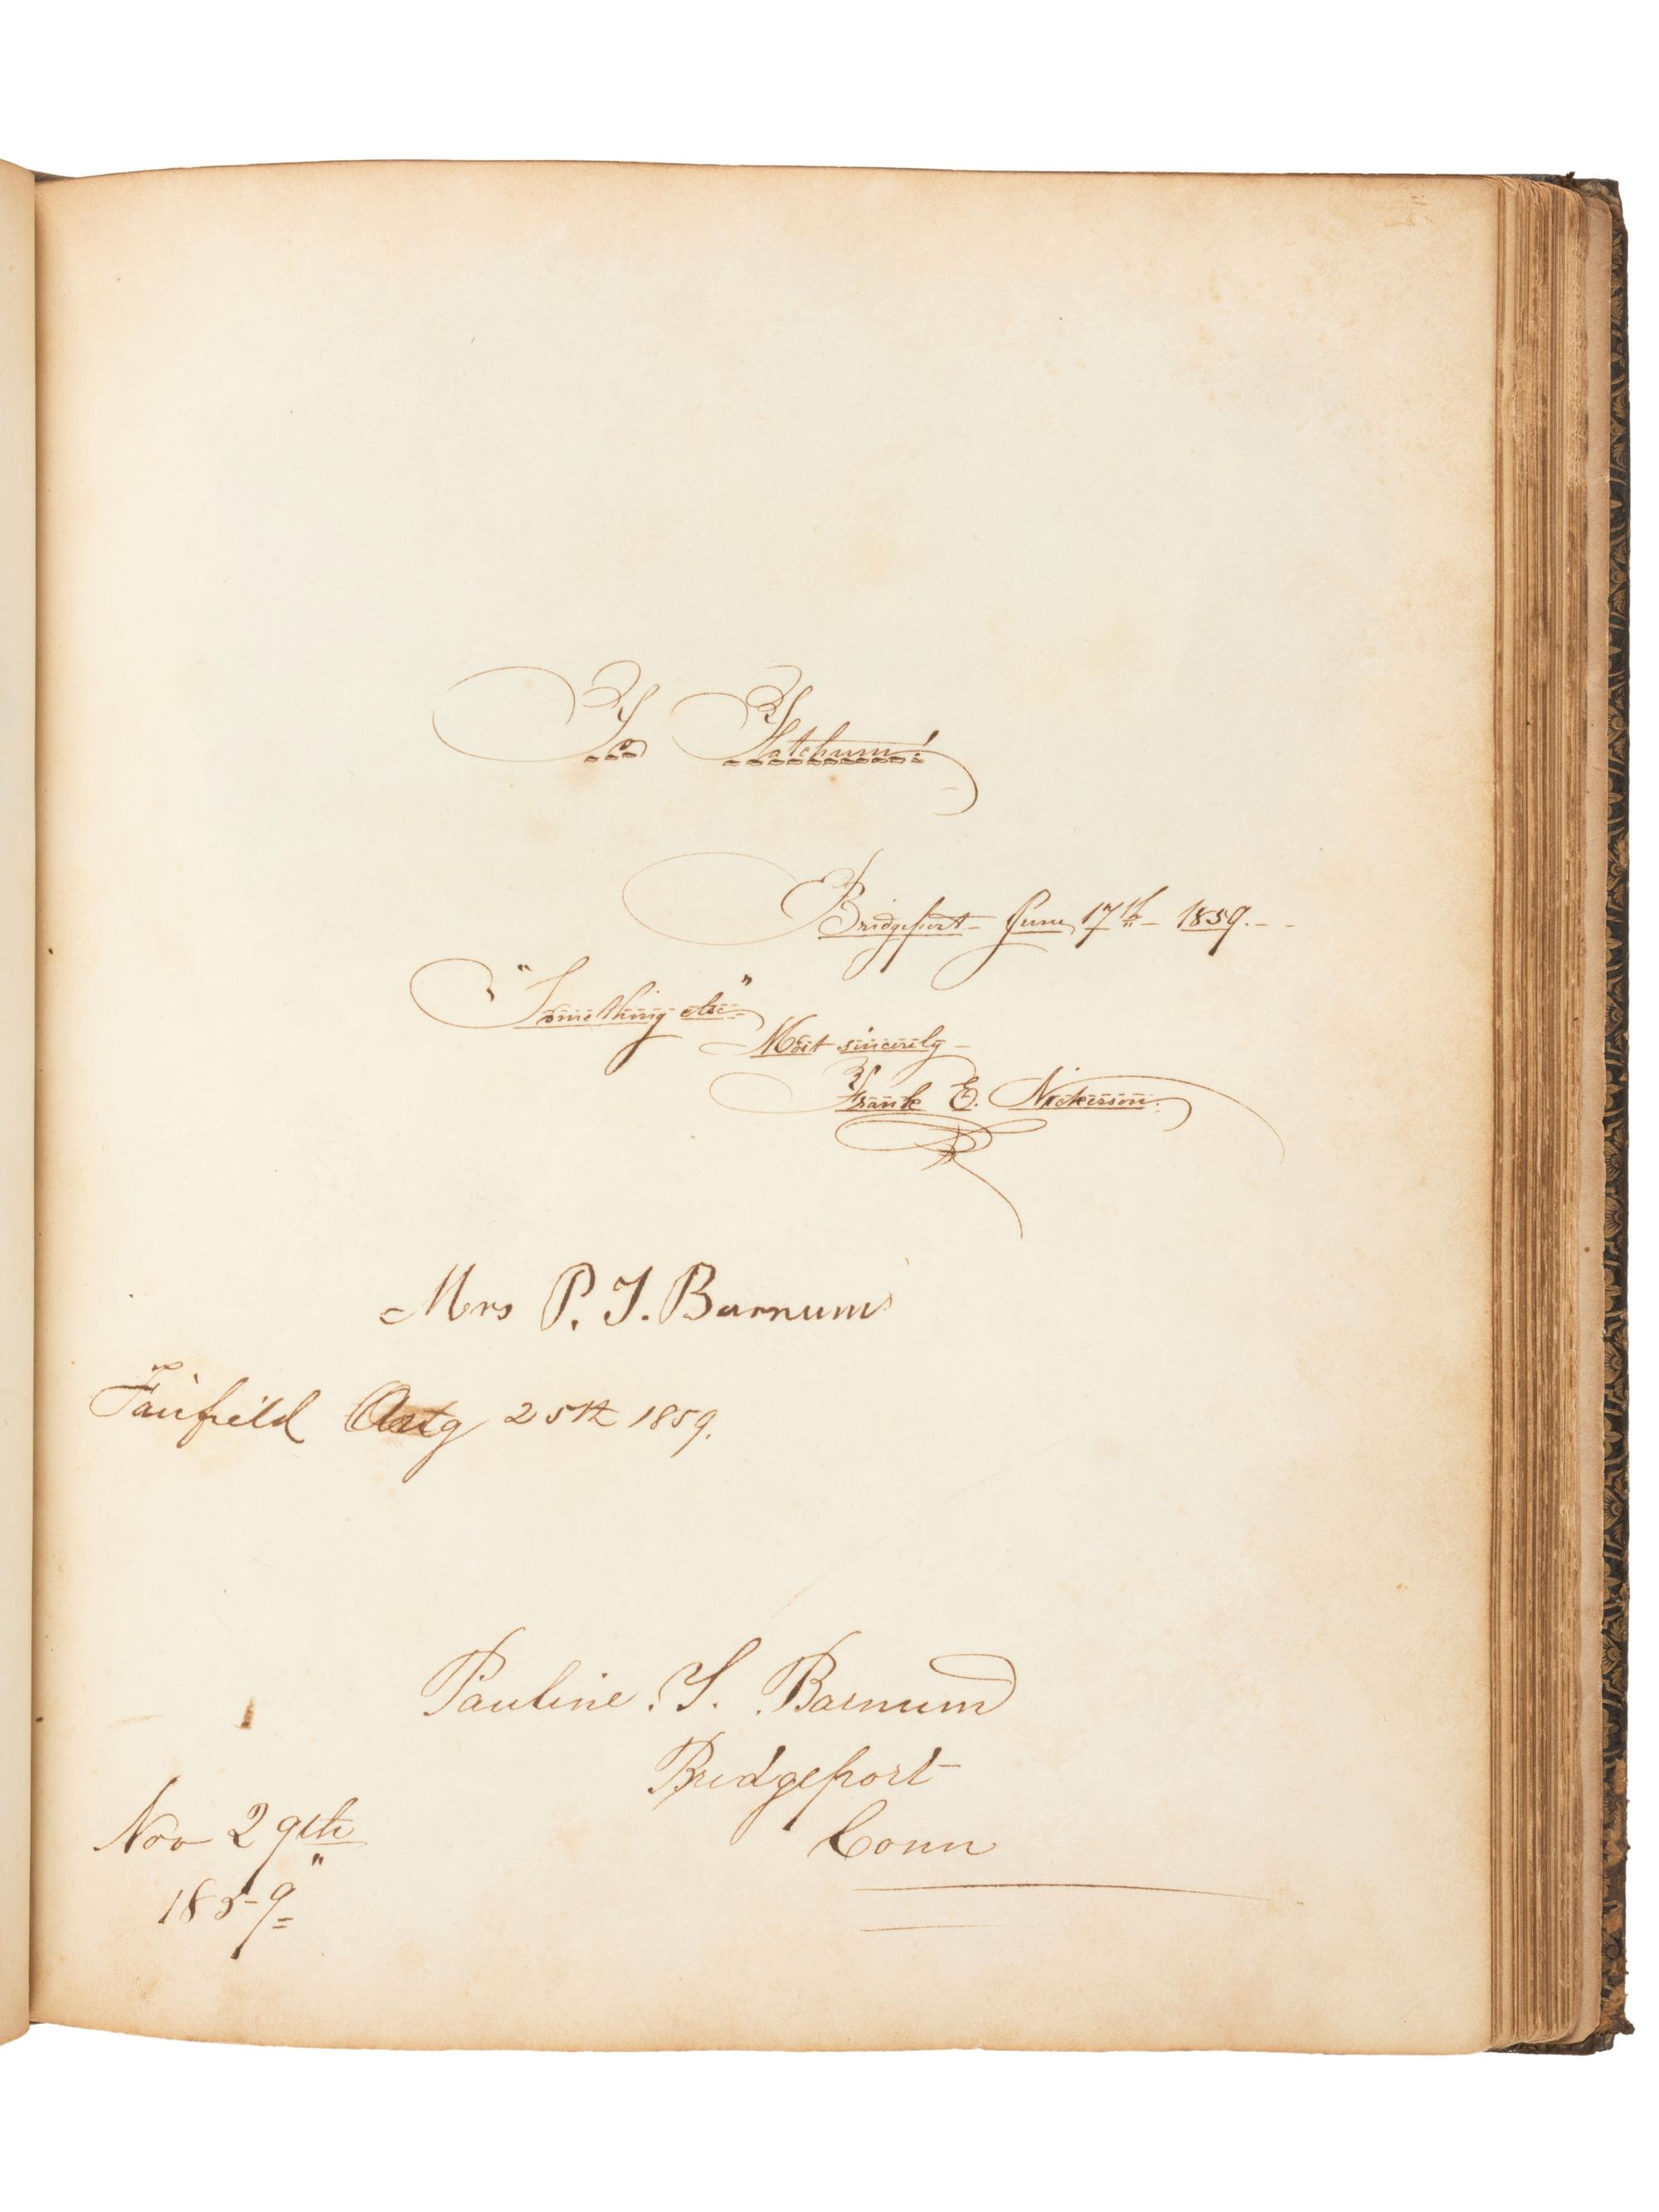 To Hatchum!
Bridgeport – June 17th – 1859. – –
"Something else"
Most sincerely –
Frank E. Nickerson.
Mrs P. T. Barnum
Fairfield Aug 25th 1859.
Pauline. T. Barnum
Bridgeport
Conn
Nov 29th
1859